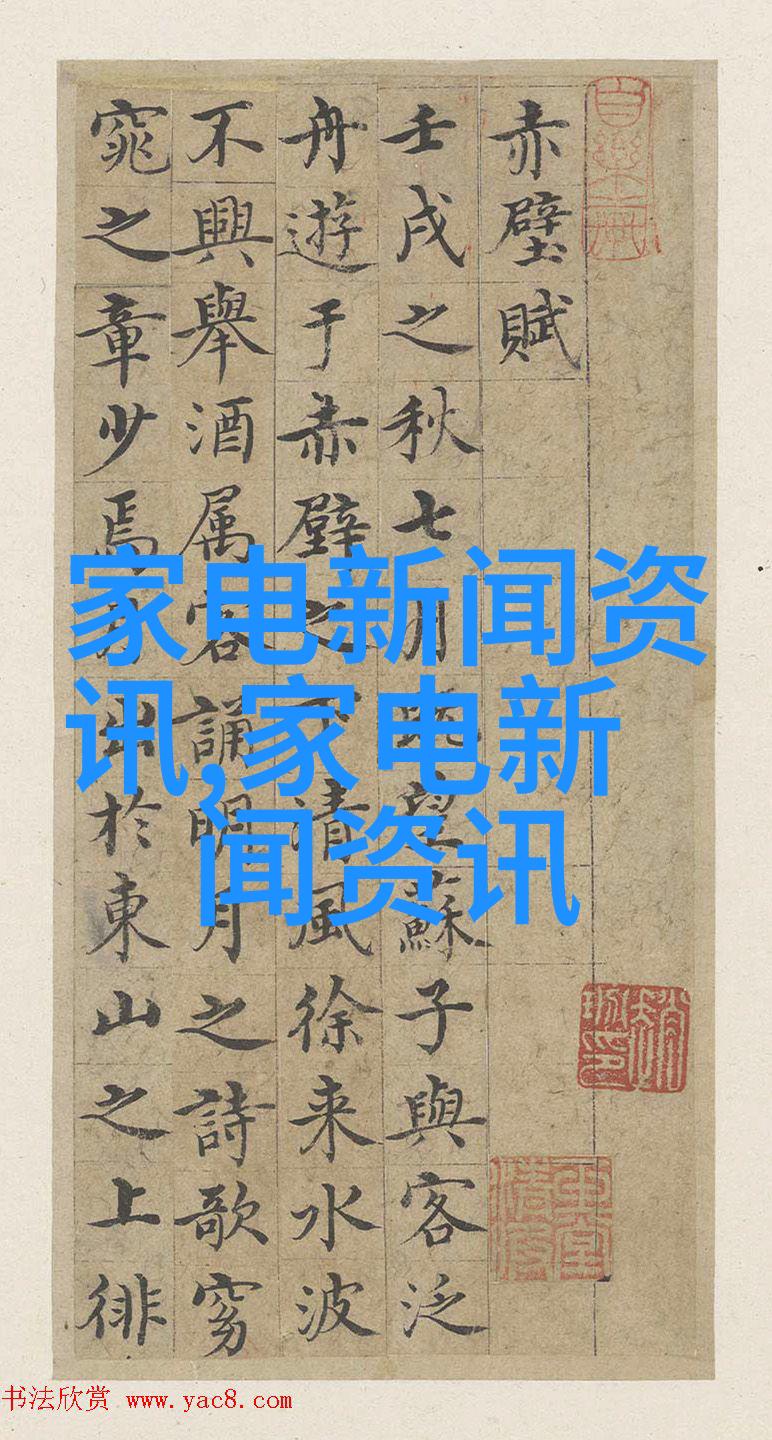 赤壁賦
壬戌之秋七月既望蘇子與客泛
舟遊于赤壁之下清風徐来水波
不興舉酒属客誦明月之詩歌窈
窕之章少焉月出於東山之上徘
家电新闻资
讯,家电新
闻资讯
书法欣赏 www.yac8.com